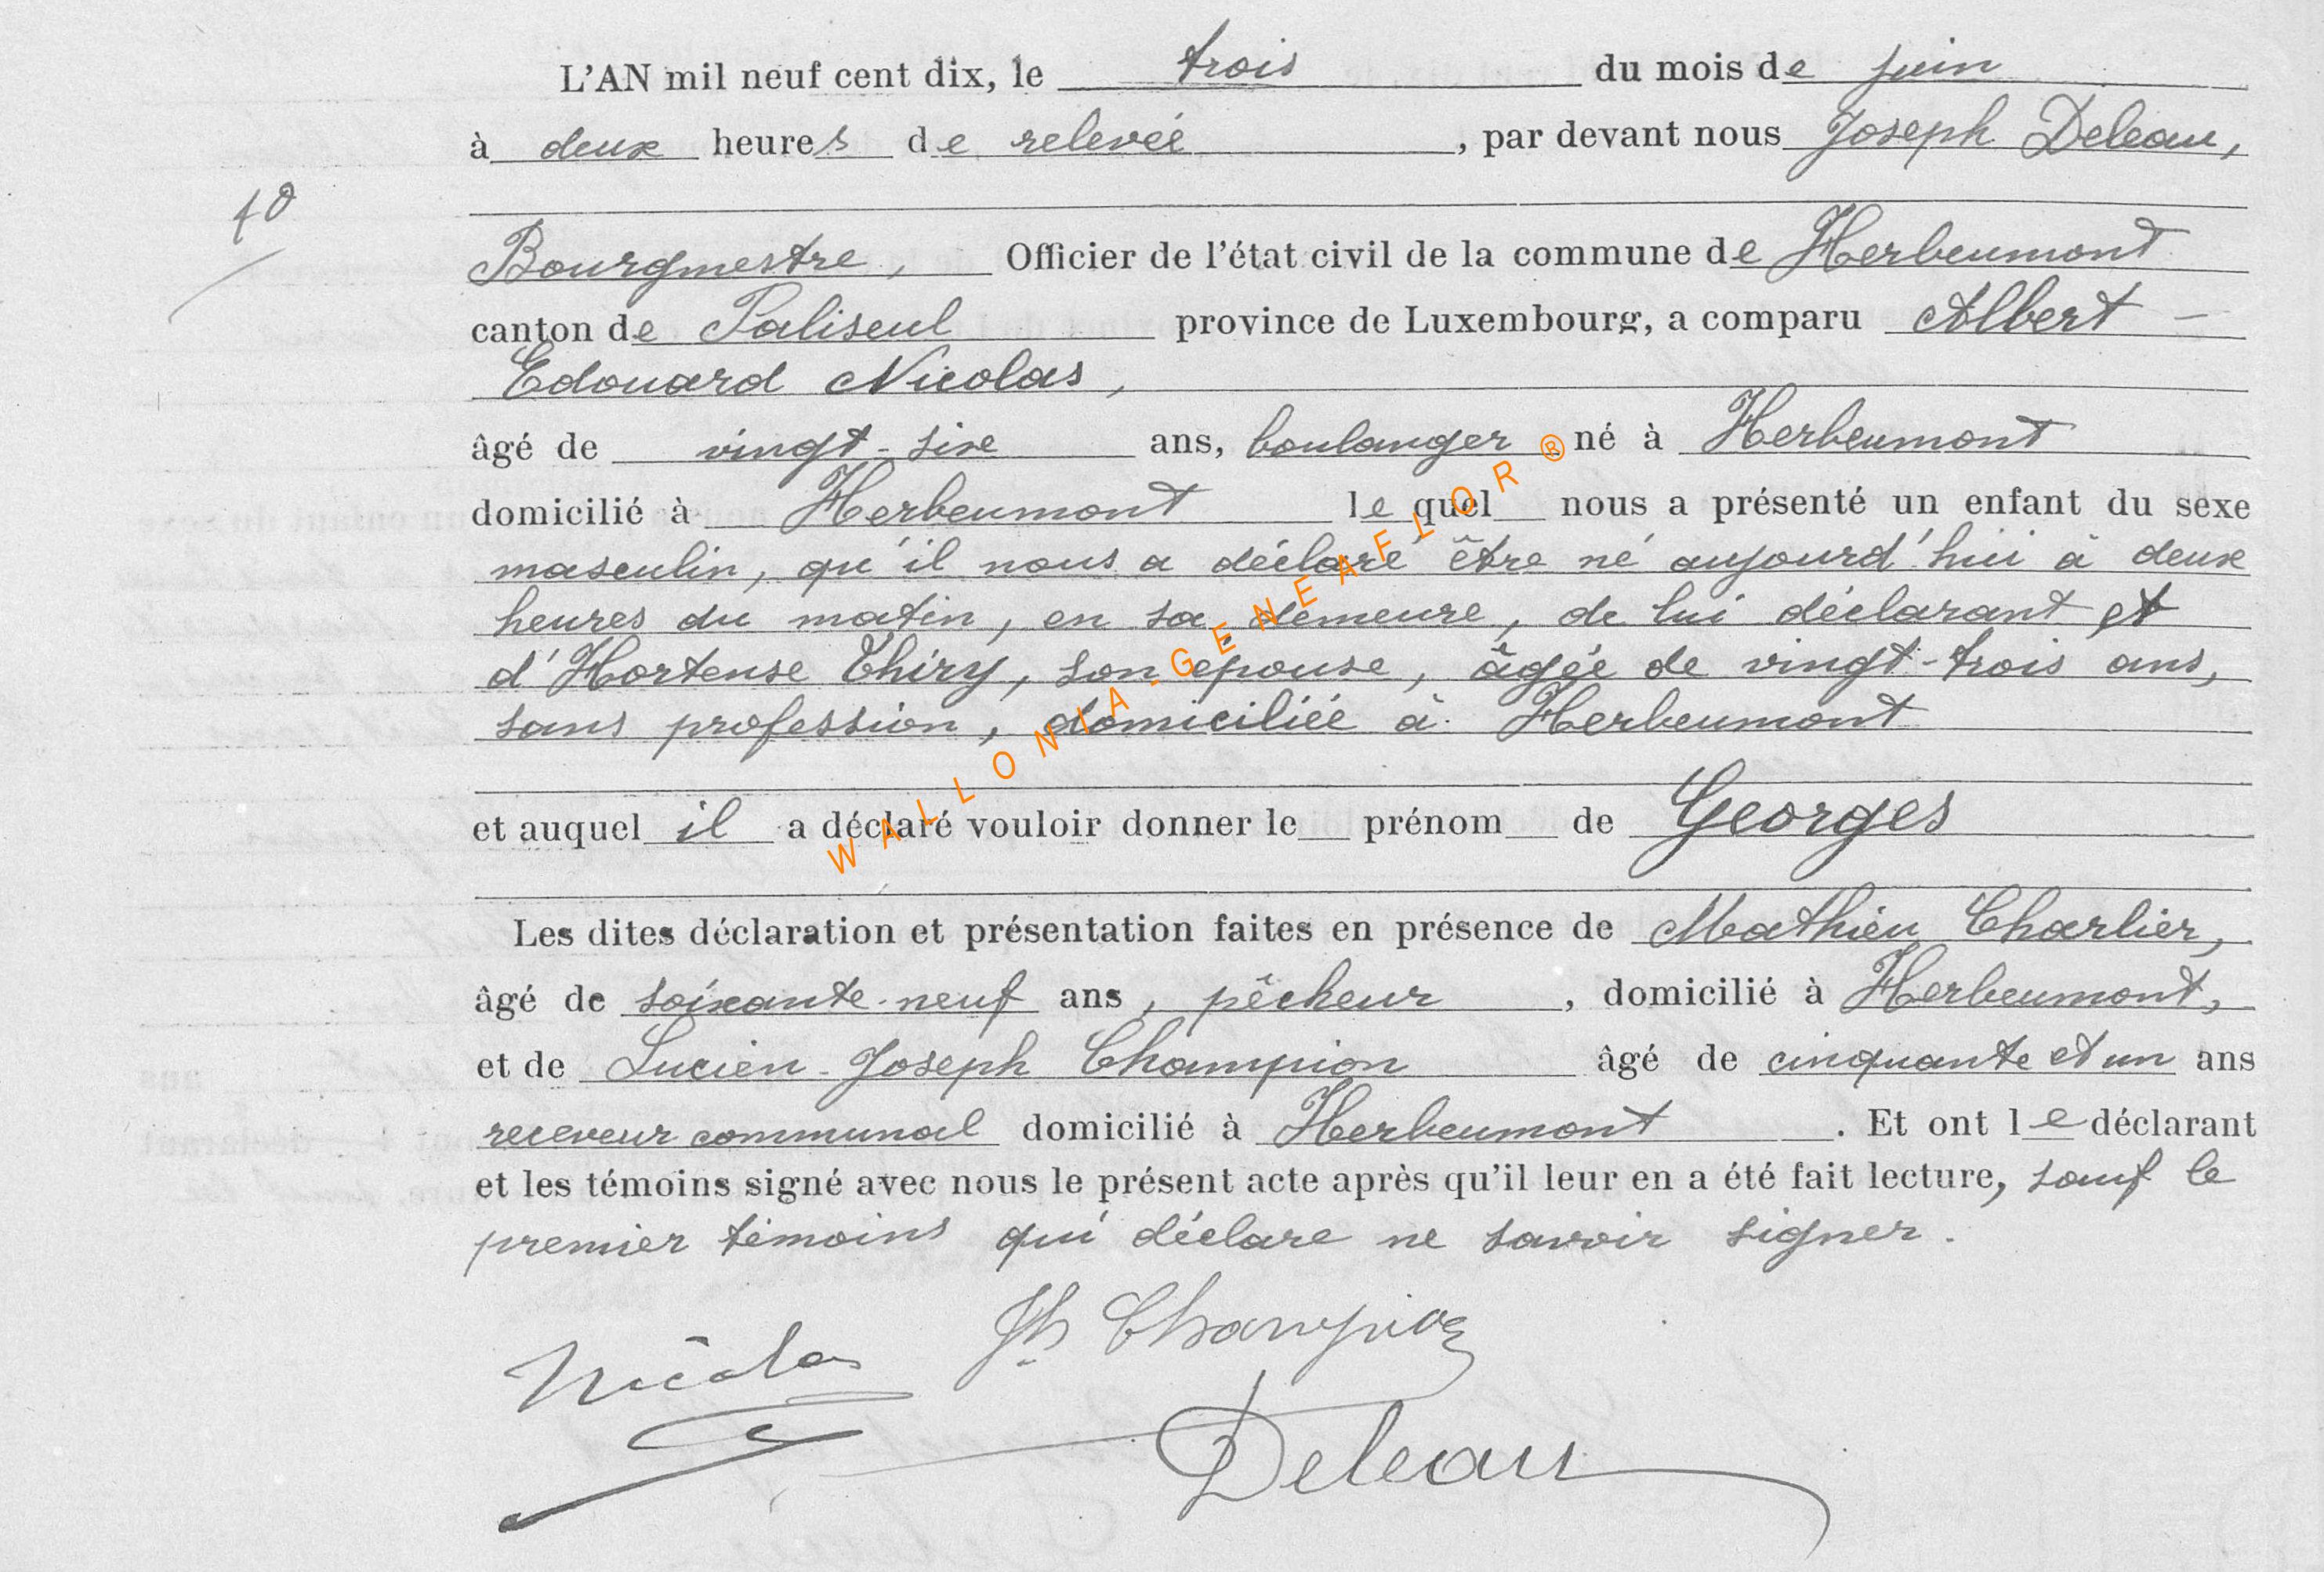 L'AN mil neuf cent dix, le trois du mois de juin
à deux heures de relevée, par devant nous Joseph Deleau,
10
Bourgmestre, Officier de l'état civil de la commune de Herbeumont
canton de Paliseul province de Luxembourg, a comparu Albert -
Edouard Nicolas,
âgé de vingt-six ans, boulanger né à Herbeumont
domicilié à Herbeumont lequel nous a présenté un enfant du sexe
masculin, qu'il nous a déclaré être né aujourd'hui à deux
heures du matin, en sa demeure, de lui déclarant et
d'Hortense Thiry, son épouse, âgée de vingt-trois ans,
sans profession, domiciliée à Herbeumont
et auquel il a déclaré vouloir donner le prénom de Georges
Les dites déclaration et présentation faites en présence de Mathieu Charlier,
âgé de soixante-neuf ans, pêcheur, domicilié à Herbeumont,
et de Lucien-Joseph Champion âgé de cinquante et un ans
receveur communal domicilié à Herbeumont. Et ont le déclarant
et les témoins signé avec nous le présent acte après qu'il leur en a été fait lecture, sauf le
premier témoins qui déclare ne savoir signer.
Nicolas Jh Champion
Deleau
WALLONIA-GENEAFLOR®